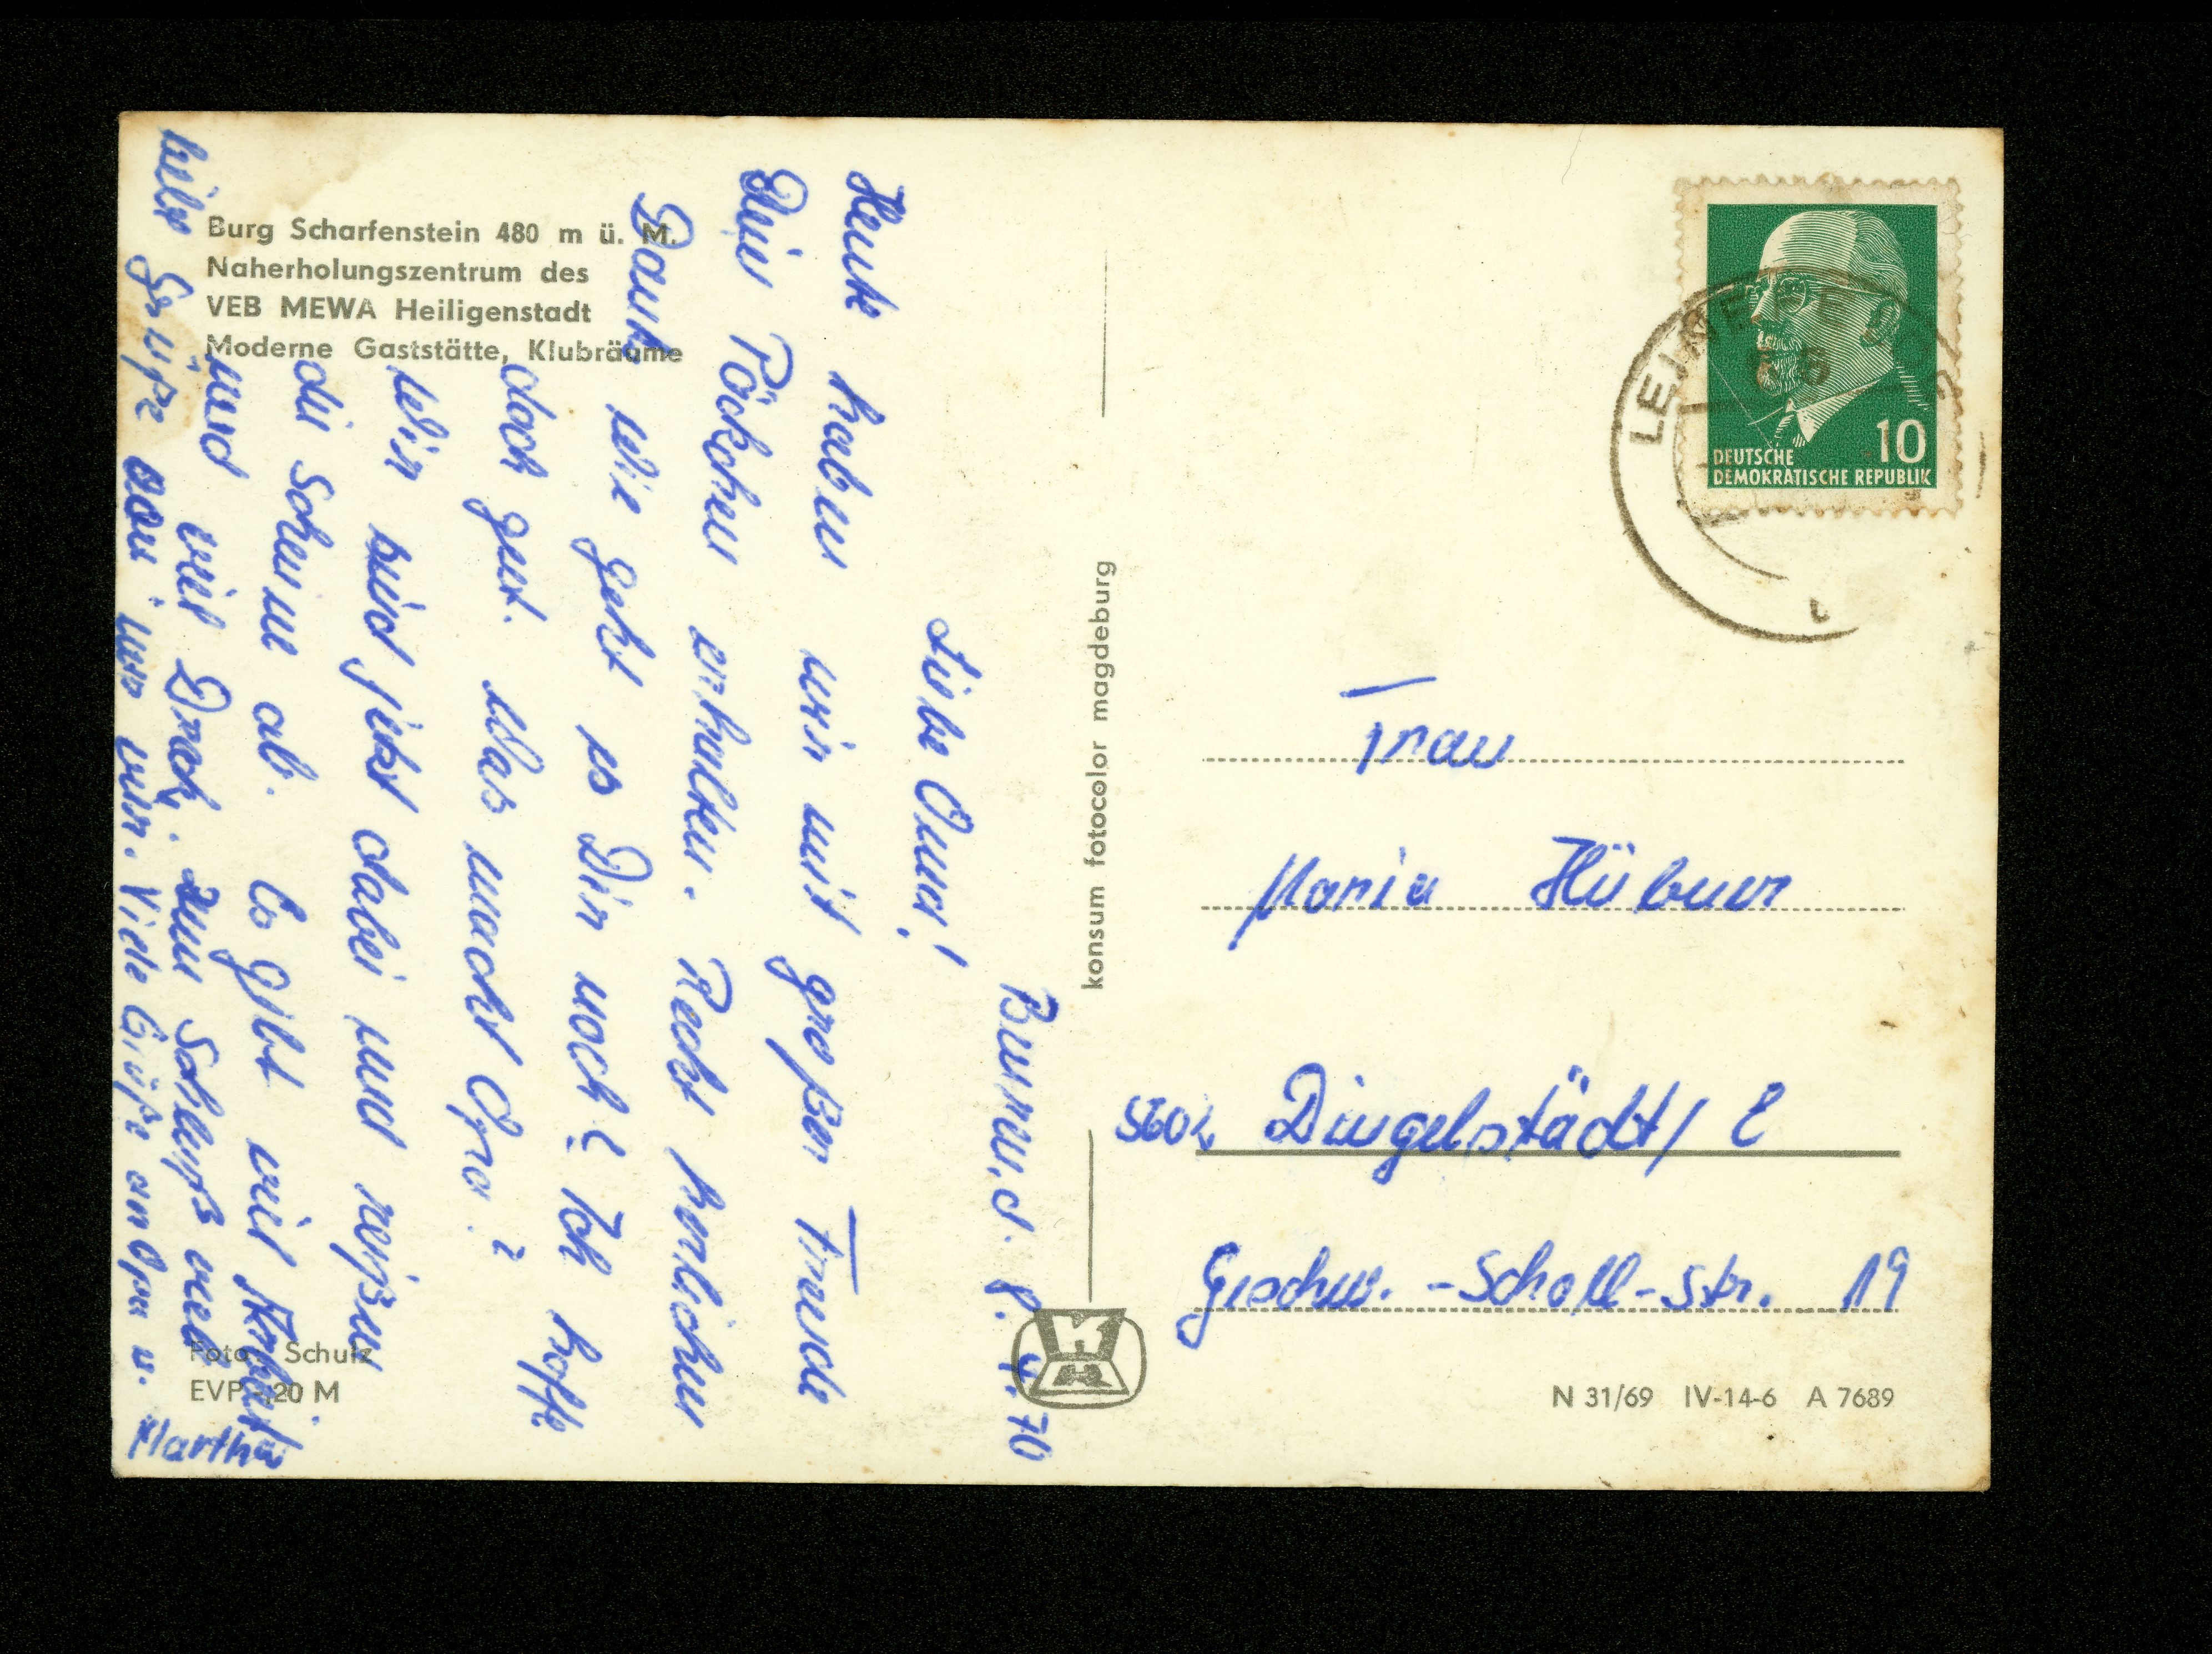 Burg Scharfenstein 480 m ü. M.
Naherholungszentrum des
VEB MEWA Heiligenstadt
Moderne Gaststätte, Klubräume
8. 4. 70
Liebe Oma!
Heute haben wir mit großer Freude
Dein Päckchen erhalten. Recht herzlichen
Dank. Wie geht es Dir noch? Ich hoffe
doch gut. Was macht Opa?
Wir sind jetzt dabei und reißen
die Scheune ab. Es gibt viel Arbeit
und viel Dreck. Zum Schluß viele
liebe Grüße von uns vier. Viele Grüße an Opa u.
Martha
Foto: Schulz
EVP -,20 M
konsum fotocolor magdeburg
DEUTSCHE
DEMOKRATISCHE REPUBLIK
10
Frau
Maria Hübner
5604 Dingelstädt / E
Geschw.-Scholl-Str. 19
N 31/69 IV-14-6 A 7689